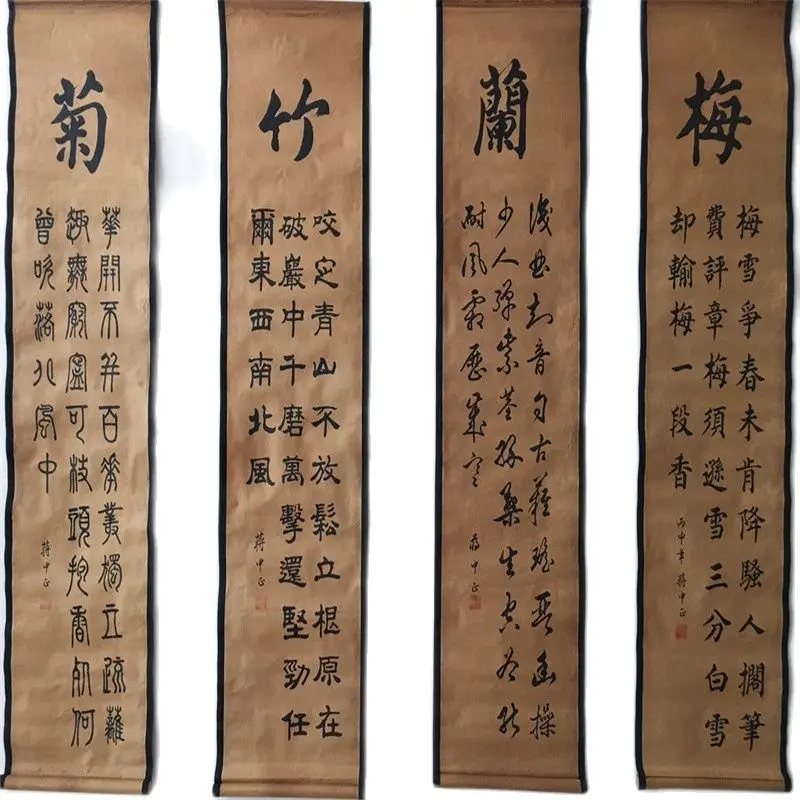 梅
梅雪爭春未肯降騷人擱筆
費評章梅須遜雪三分白雪
却輸梅一段香
丙申年蔣中正
蘭
識曲知音自古難瑤琴幽操
少人彈紫莖綠葉生空谷能
耐風霜歷歲寒
蔣中正
竹
咬定青山不放鬆立根原在
破巖中千磨萬擊還堅勁任
爾東西南北風
蔣中正
菊
華開不并百花叢獨立疏籬
趣無窮寧可枝頭抱香死何
曾吹落北風中
蔣中正